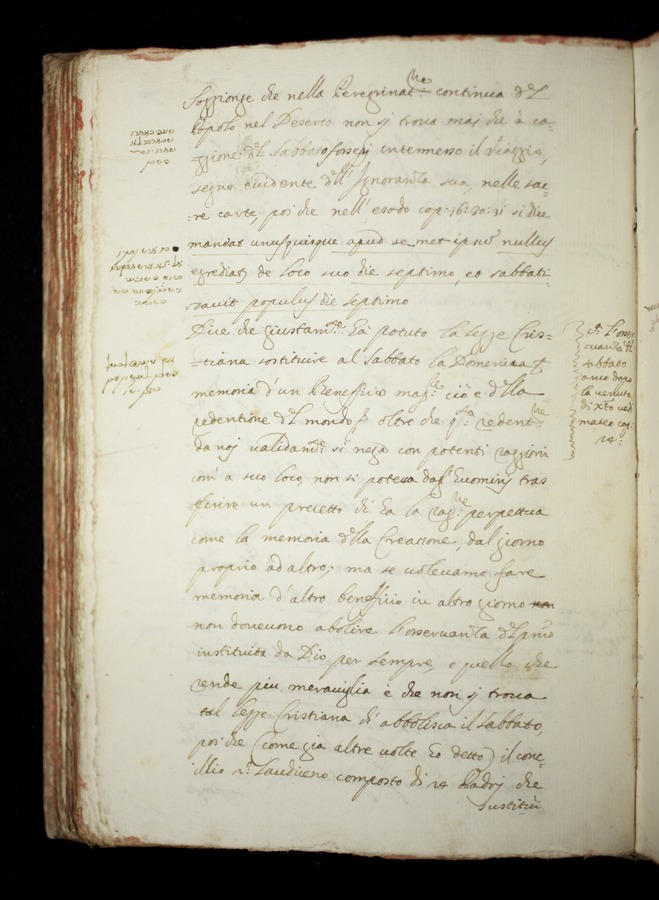 Soggionge che nella Peregrinat.ne continua d'l
Popolo nel Deserto non si trova maj che à ca-
=gione d'l Sabbato fossesi intermesso il viaggio,
segno evidente d'll' Ignoranza sua, nelle sac-
=re carte, poi che nell' exodo cap: 16: 30: 31 si dice
maneat unusquisque apud se met ipsũ nullus
egrediat de loco suo die septimo, et sabbati-
zavit populus die septimo
Dice che giustam.te ha potuto la legge Cris=
=tiana sostituire al Sabbato la Domenica
memoria d'un Beneficio mag.re cio è d'lla
redentione d'l mondo oltre che q.sta redent.ne
da noj validam.te si nega con potenti raggioni
com' a suo loco, non si poteva dagl' Huominj tras
=ferire un precetto di ha la rag.ne perpettua
come la memoria d'lla Creatione, dal giorno
proprio ad altro; ma se volevamo fare
memoria d'altro beneficio in altro giorno
non dovevono abolire l'osservanza d'l primo
instituita da Dio per sempre, e quello che
rende piu meraviglia è che non si trova
tal legge Cristiana ch' abbolisca il Sabbato,
poi che (come gia altre volte ho detto) il conc-
illio Laudiceno composto di 24 Padrj che
sustituì
l'osser
vanza d'l
sabbato
anco dopo
la venuta
di Xto ved
mateo cap:
24: